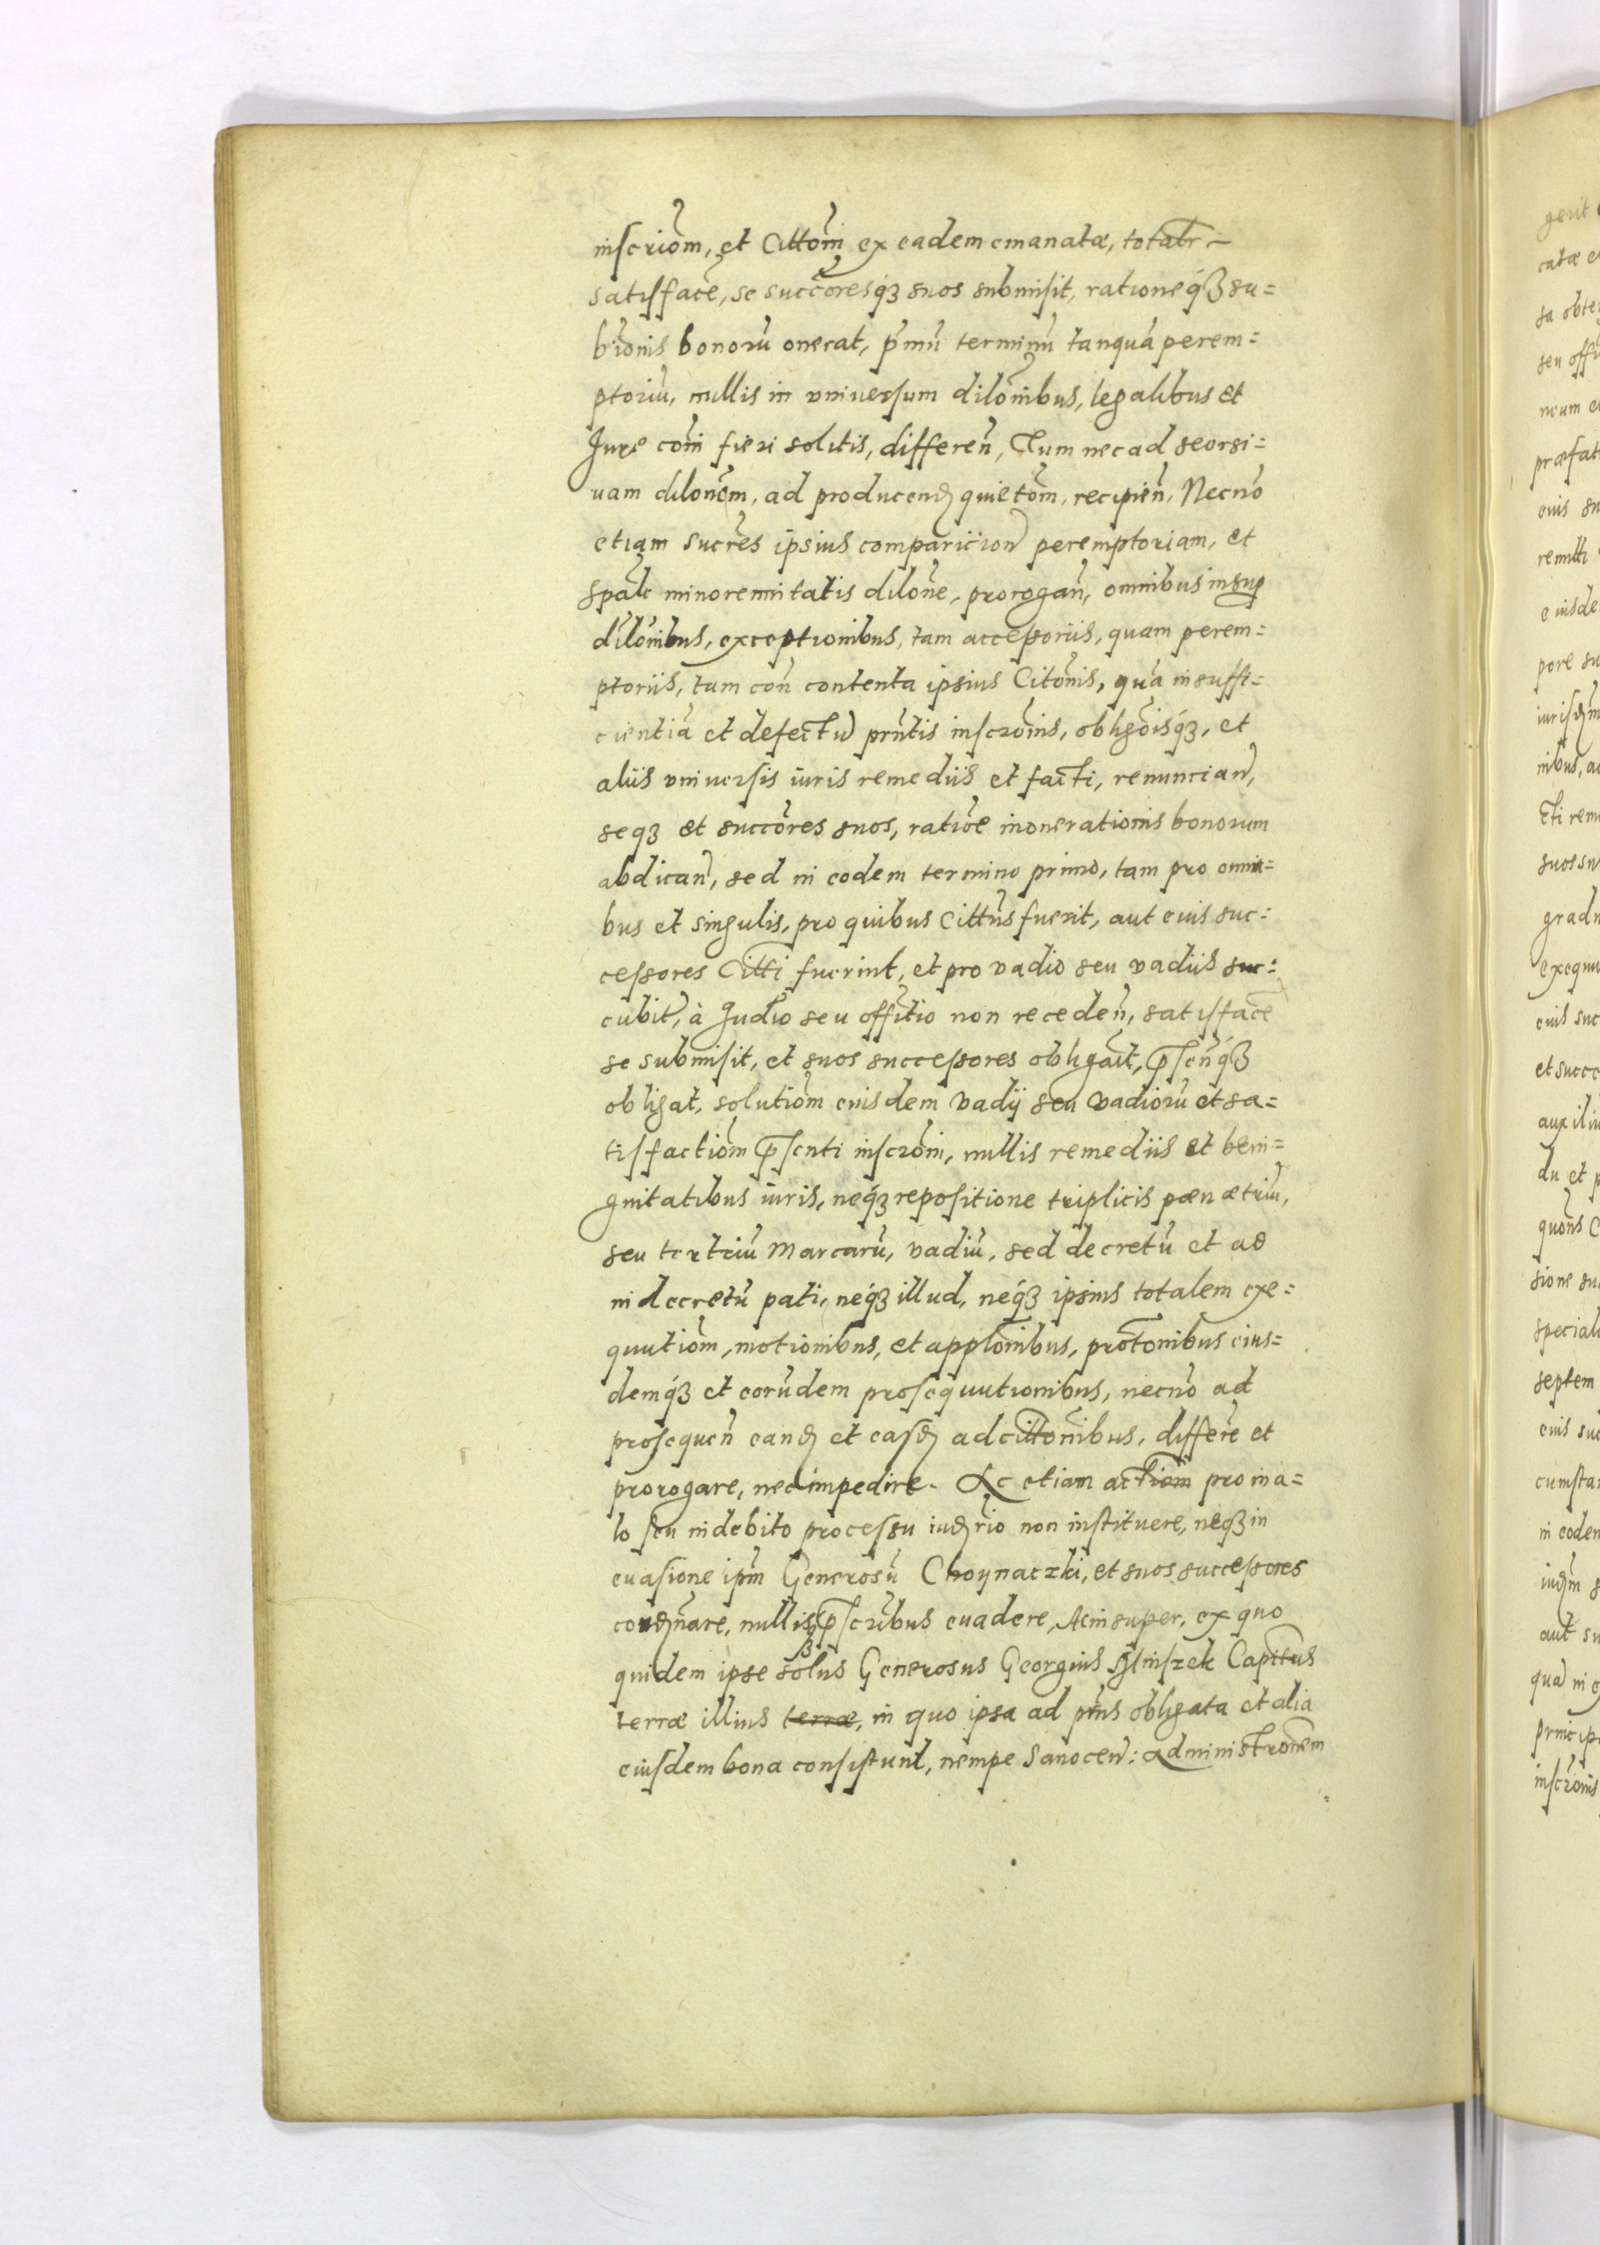 inscriom̃, et Cittom̃ ex eadem emanatæ, totalr̃
satisface͂, se succ͂oresq́ꝫ suos submisit, rationeq́ꝫ su=
b͂ionis bonorũ onerat, p͂mũ terminũ tanquã perem=
ptoriũ, nullis in vniuersum dilõnibus, legalibus et
Jure com̃ fieri solitis, differeñ, Tum nec ad seorsi=
uam dilonẽm, ad producenđ quietom̃, recipieñ, Necnõ
etiam sucr̃es ipsius comparicioñ peremptoriam, et
spãlr minorennitatis dilone͂, prorogañ, omnibus insup
dilõnibus, exceptionibus, tam accessoriis, quam perem=
ptoriis, tum coñ contenta ipsius Citõnis, quã insuffi=
cientiã et defectũ prñtis inscrõnis, obligõisq́ꝫ, et
aliis vniuersis iuris remediis et facti, renuncian͂,
seqꝫ et succõres suos, ratiõe inonerationis bonorum
abdicañ, sed in eodem termino primo, tam pro omni=
bus et singulis, pro quibus Cittũs fuerit, aut eius suc=
cessores Citti fuerint, et pro vadio seu vadiis suc=
cubit͂, à Judio͂ seu offitio non recedeñ, satisface͂
se submisit, et suos successores obligaũt, p̄señq́ꝫ
obligat, solutiom̃ eiusdem vadij seu vadiorũ et sa=
tisfactiom̃ p̄senti inscrõni, nullis remediis et beni=
gnitatibus iuris, neq́ꝫ repositione triplicis pœnæ triũ,
seu tertriũ Marcarũ, vadiũ, sed decretũ et ad
indecretũ pati, neq́ꝫ illud, neq́ꝫ ipsius totalem exe=
quutiom̃, motionibus, et applõnibus, protõnibus eius=
demq́ꝫ et eorũdem prosequutionibus, necnõ ad
prosequeñ eanđ et easđ adcittõnibus, differe͂ et
prorogare, nec impedire. Ac etiam actiom̃ pro ma=
lo seu indebito processu iuđrio non instituere, neqꝫ in
euasione ipm̃ Generosũ Choynaczki, et suos successores
conđm̃nare, nullisqꝫ p̄scrĩbus euadere, Acinsuper, ex quo
quidem ipse solus Generosus Georgius Capitũs
terræ illius terræ, in quo ipsa ad pm̃s obligata et alia
eiusdem bona consistunt, nempe Sanoceñ: Administrõnem